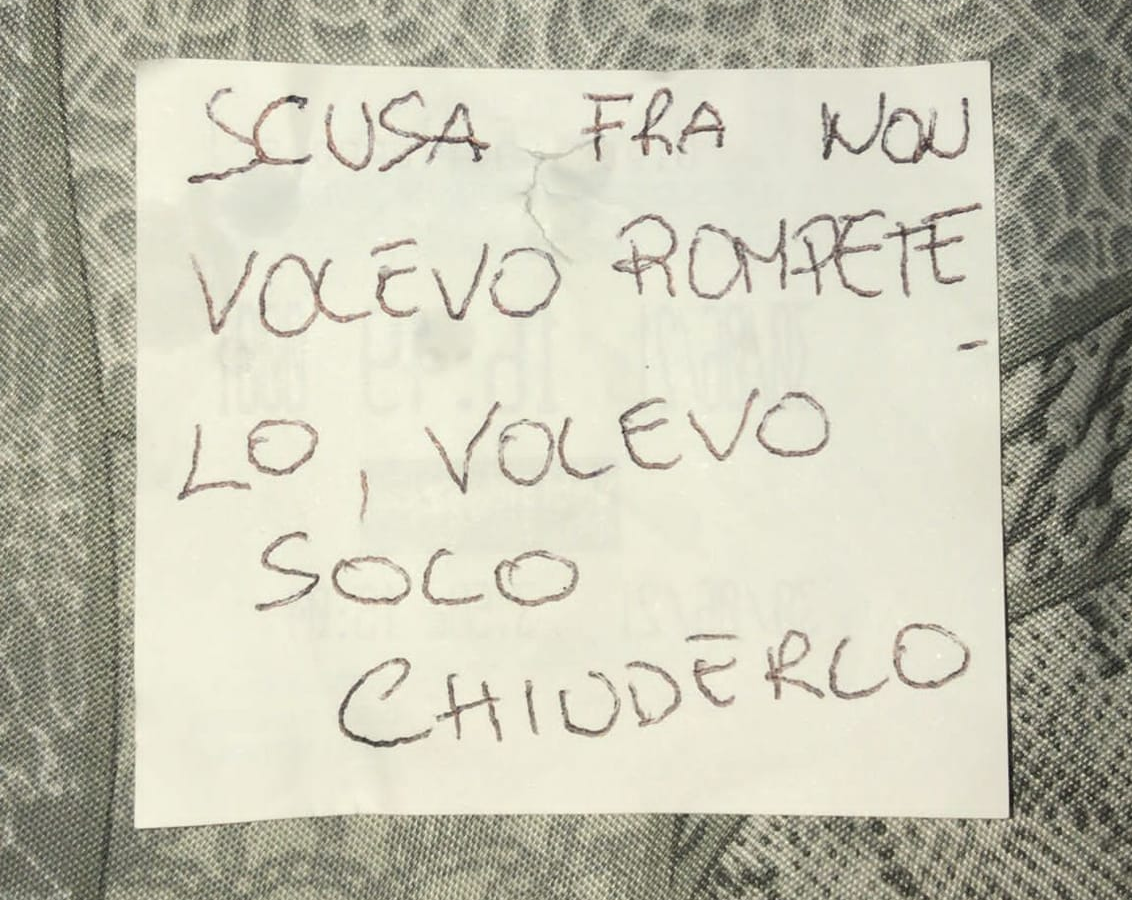 SCUSA FRA NON
VOLEVO ROMPETE-
LO, VOLEVO
SOLO
CHIUDERLO